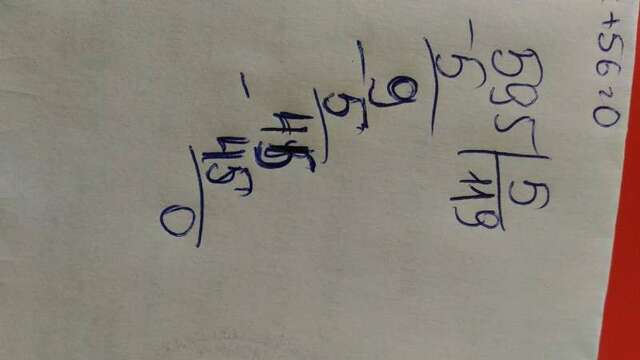 +56=0
595 | 5
-5 | 119
9
-5
45
-45
0